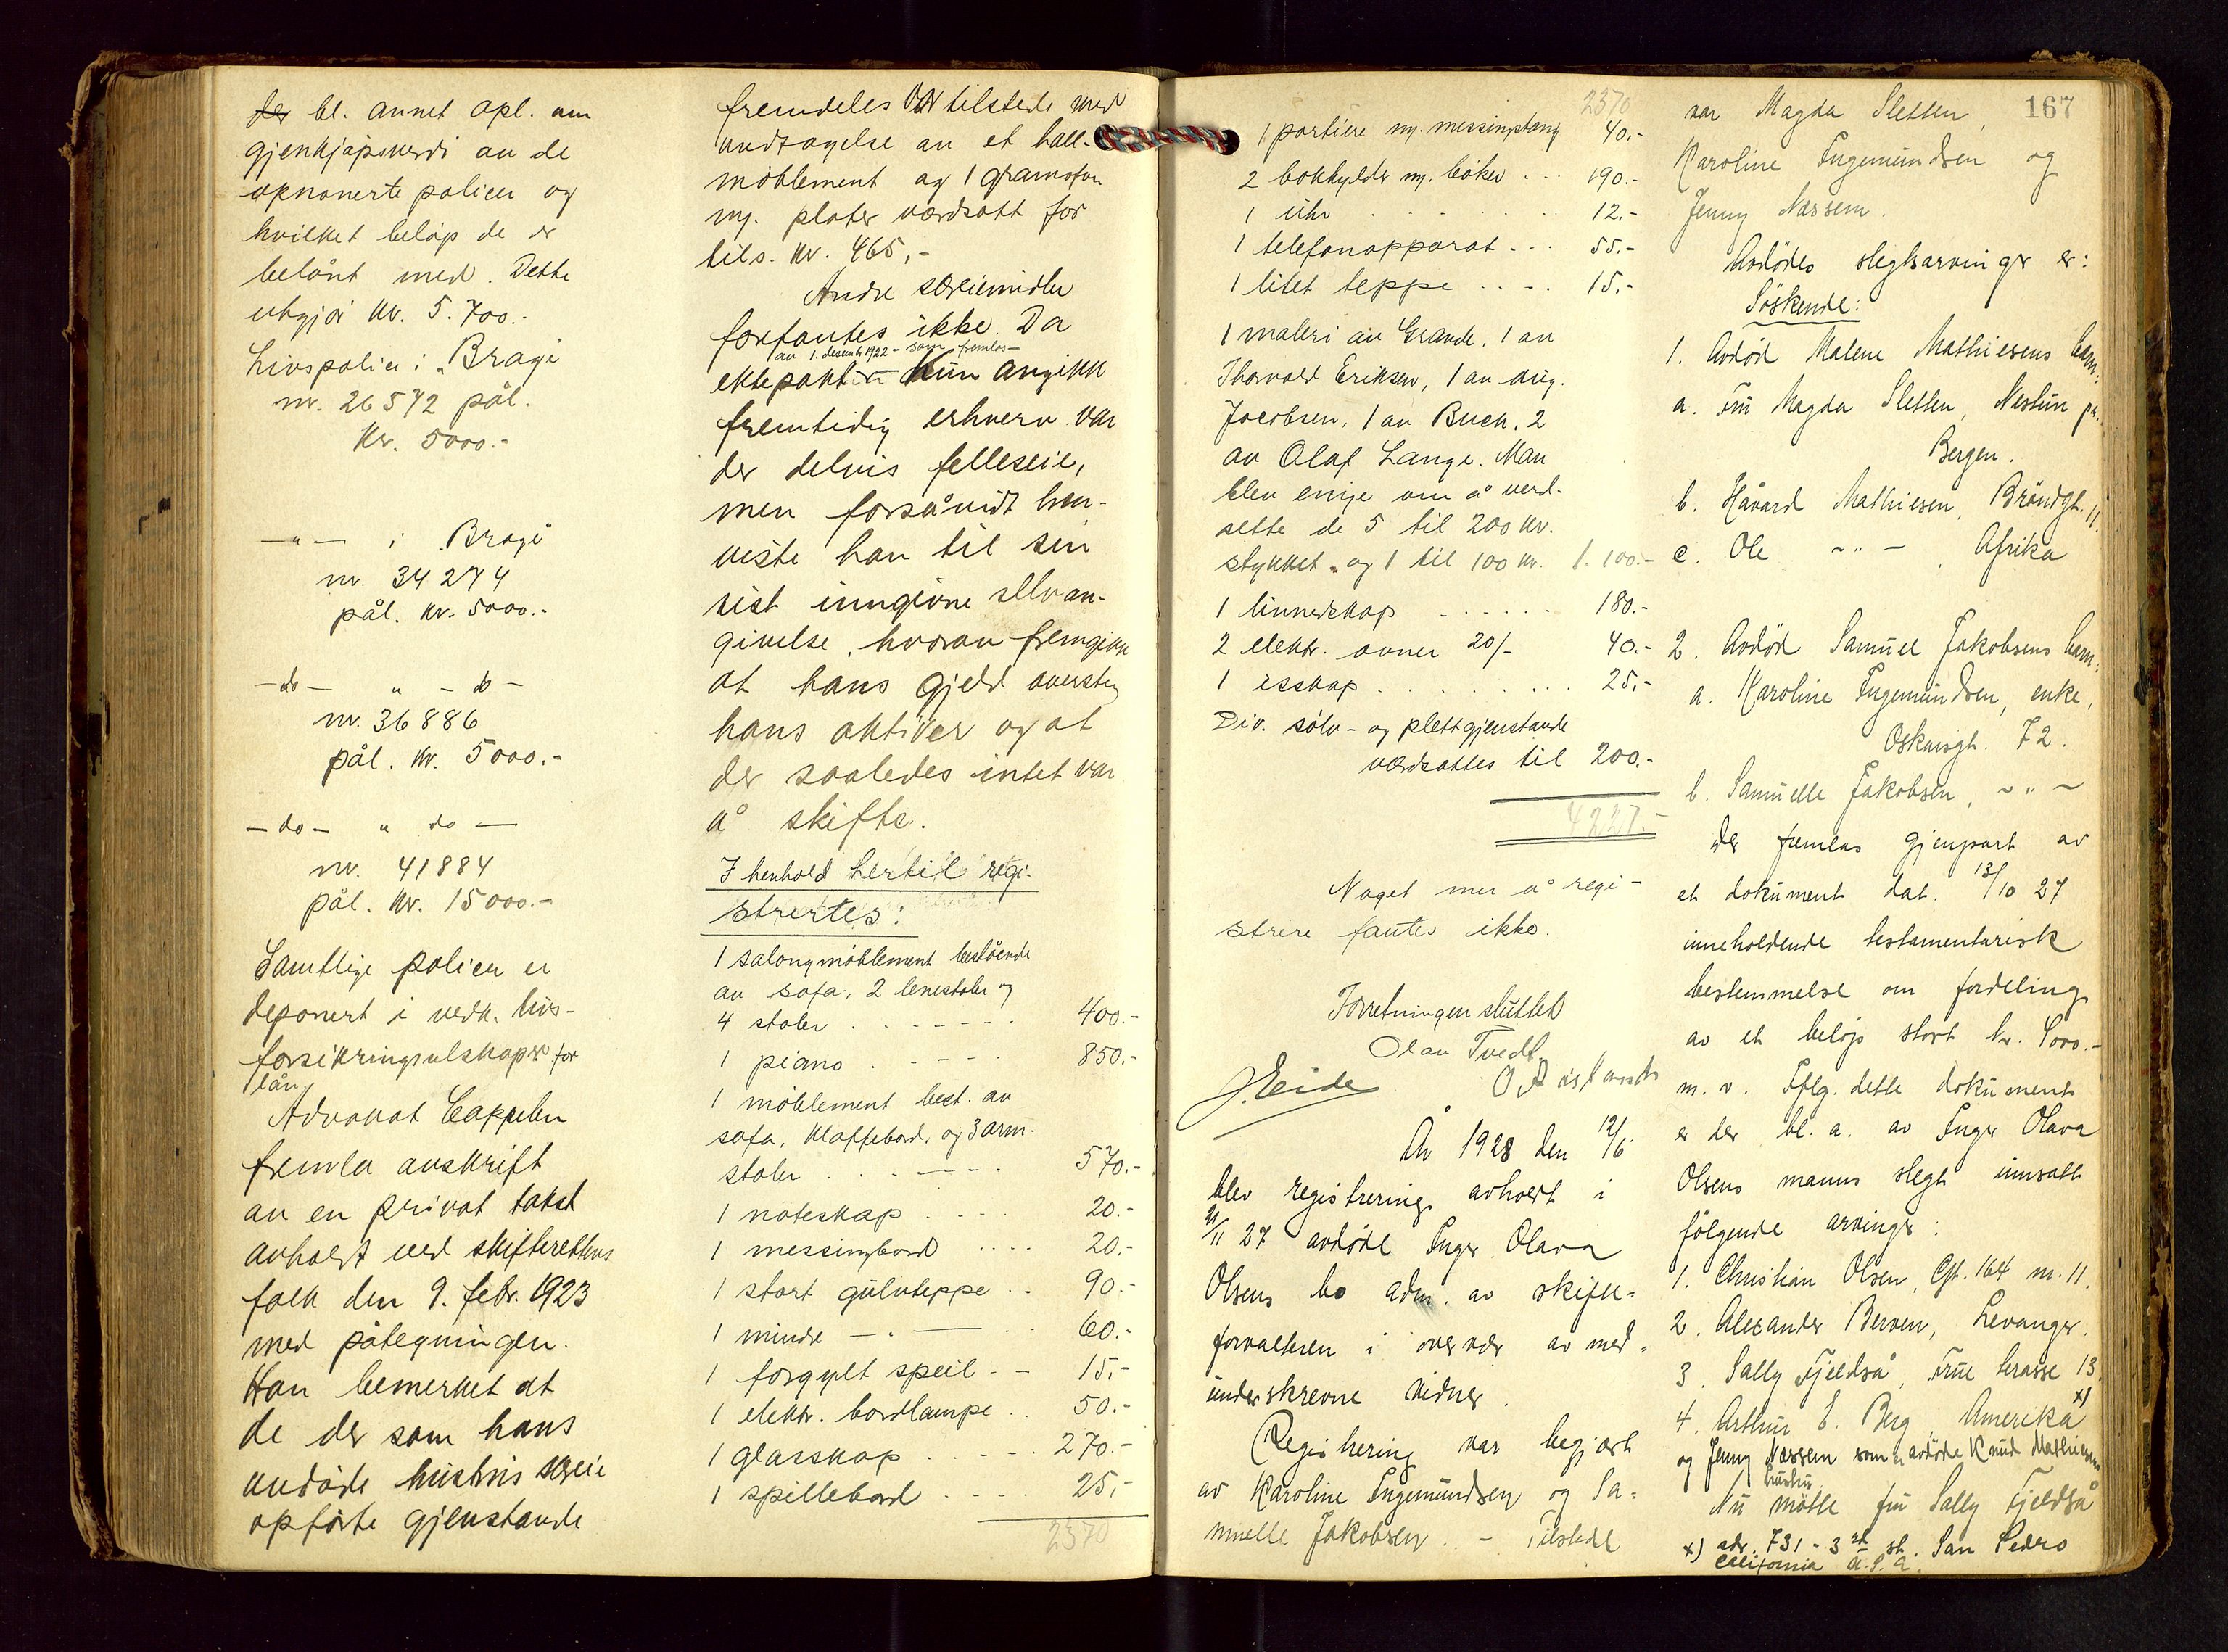 der bl. annet opl. om
gjenkjøpsverdi av de
opnonerte policer og
hvilket beløp de er
belånt med. Dette
utgjør kr. 5.700.-
Livspolice i "Brage
nr. 26572 pål.
kr. 5000.-
—"— i Brage
nr. 34274
pål. kr. 5000.-
-do- " -do-
nr. 36886
pål. kr. 5000.-
-do- " do —
nr. 41884
pål. kr. 15000.-
Samtlige policer er
deponert i vedk. livs-
forsikringselskaper for
lån.
Advokat Cappelen
fremla avskrift
av en privat takst
avholdt ved skifterettens
folk den 9. febr. 1923
med påtegningen.
Han bemerket at
de der som hans
avdøde hustrus særeie
opførte gjenstande
fremdeles var tilstede med
undtagelse av et hall-
møblement og 1 gramofon
m. plater værdsatt for
tils. kr. 465,-
Andre særeiemidler
forfantes ikke. Da
av 1. desemb. 1922 - som fremlås -
ektepakten kun angikk
fremtidig erhverv var
der delvis felleseie,
men forsåvidt hen-
viste han til sin
sist inngivne selvan-
givelse, hvorav fremgikk
at hans gjeld oversteg
hans aktiver og at
der saaledes intet var
å skifte.
I henhold hertil regi-
strertes:
1 salongmøblement bestående
av sofa, 2 lenestoler og
4 stoler . . . . . . . 400.-
1 piano . . . . . 850.-
1 møblement best. av
sofa, klaffebord, og 3 arm-
stoler . . . . . . 570.-
1 noteskap . . . . 20.-
1 messingbord . . . . 20.-
1 stort gulvteppe . . 90.-
1 mindre —"— . . 60.-
1 forgylt speil - - 15,-
1 elektr. bordlampe . . 50.-
1 glasskap . . . . . 270.-
1 spillebord . . . . 25,-
2370
2370
1 portiere m. messingstang 40.-
2 bokhylder m. bøker . . . 190.-
1 uhr . . . . . . 12.-
1 telefonapparat . . . 55.-
1 litet teppe . . . . 15.-
1 maleri av Grande, 1 av
Thorvald Eriksen, 1 av Aug.
Jacobsen, 1 av Buch, 2
av Olaf Lange. Man
blev enige om å verd-
sette de 5 til 200 kr.
stykket og 1 til 100 kr. 1.100.-
1 linnedskap . . . . . . 180.-
2 elektr. ovner 20/- 40.-
1 isskap . . . . . . . . 25.-
Div. sølv- og plettgjenstande
værdsattes til 200.-
4227.-
Noget mer å regi-
strere fantes ikke.
Forretningen sluttet
Olav Tvedt
J. Eide
År 1928 den 12/6
blev registrering avholdt i
21/11 27 avdøde Inger Olava
Olsens bo adm. av skifte-
forvalteren i overvær av med-
underskrevne vidner.
Registrering var begjært
av Karoline Ingemundsen og Sa-
muelle Jakobsen. - Tilstede
167
var Magda Sletten,
Karoline Ingemundsen og
Jenny Næssem.
Avdødes slegtsarvinger er:
Söskende:
1. Avdød Malene Mathiesens barn:
a. Fru Magda Sletten, Nestun pr.
Bergen.
b. Håvard Mathiesen, Bröndgt. 11.
c. Ole ~"~ Afrika
2. Avdød Samuel Jakobsens barn:
a. Karoline Ingemundsen, enke,
Oskarsgt. 72.
b. Samuelle Jakobsen, ~"~
Der fremlas gjenpart av
et dokument dat. 13/10 27
inneholdende testamentarisk
bestemmelse om fordeling
av et beløp stort kr. 5000.-
m. v. Iflg. dette dokument
er der bl. a. av Inger Olava
Olsens manns slegt innsatt
følgende arvinger:
1. Christian Olsen, Gt. 164 nr. 11.
2. Alexander Berven, Levanger.
3. Sally Fjeldså, True terasse 13.
4. Arthur E. Berg, Amerika x)
og Jenny Næssem som er avdøde Knud Mathiesens
hustru.
Nu møtte fru Sally Fjeldså
x) adr. 731 - 3 rd st. San Pedro
California U.S.A.